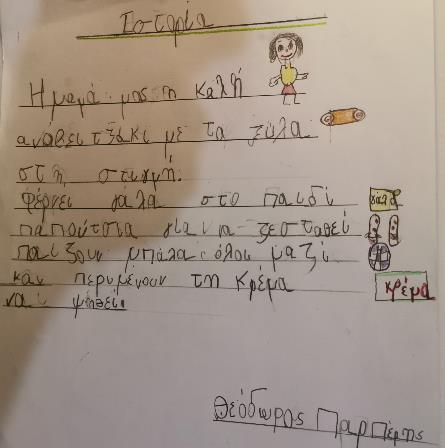 Ιστορία
Η μαμά μας η καλή
αναβει τζάκι με τα ξύλα
στη στιγμή.
φέρνει γάλα στο παιδί γαλα
παπούτσια για να ζεσταθεί
παιζουν μπάλα όλοι μαζί
και περιμένουν τη κρέμα κρέμα
να ψηθεί
Θεόδωρος Παρπέρης